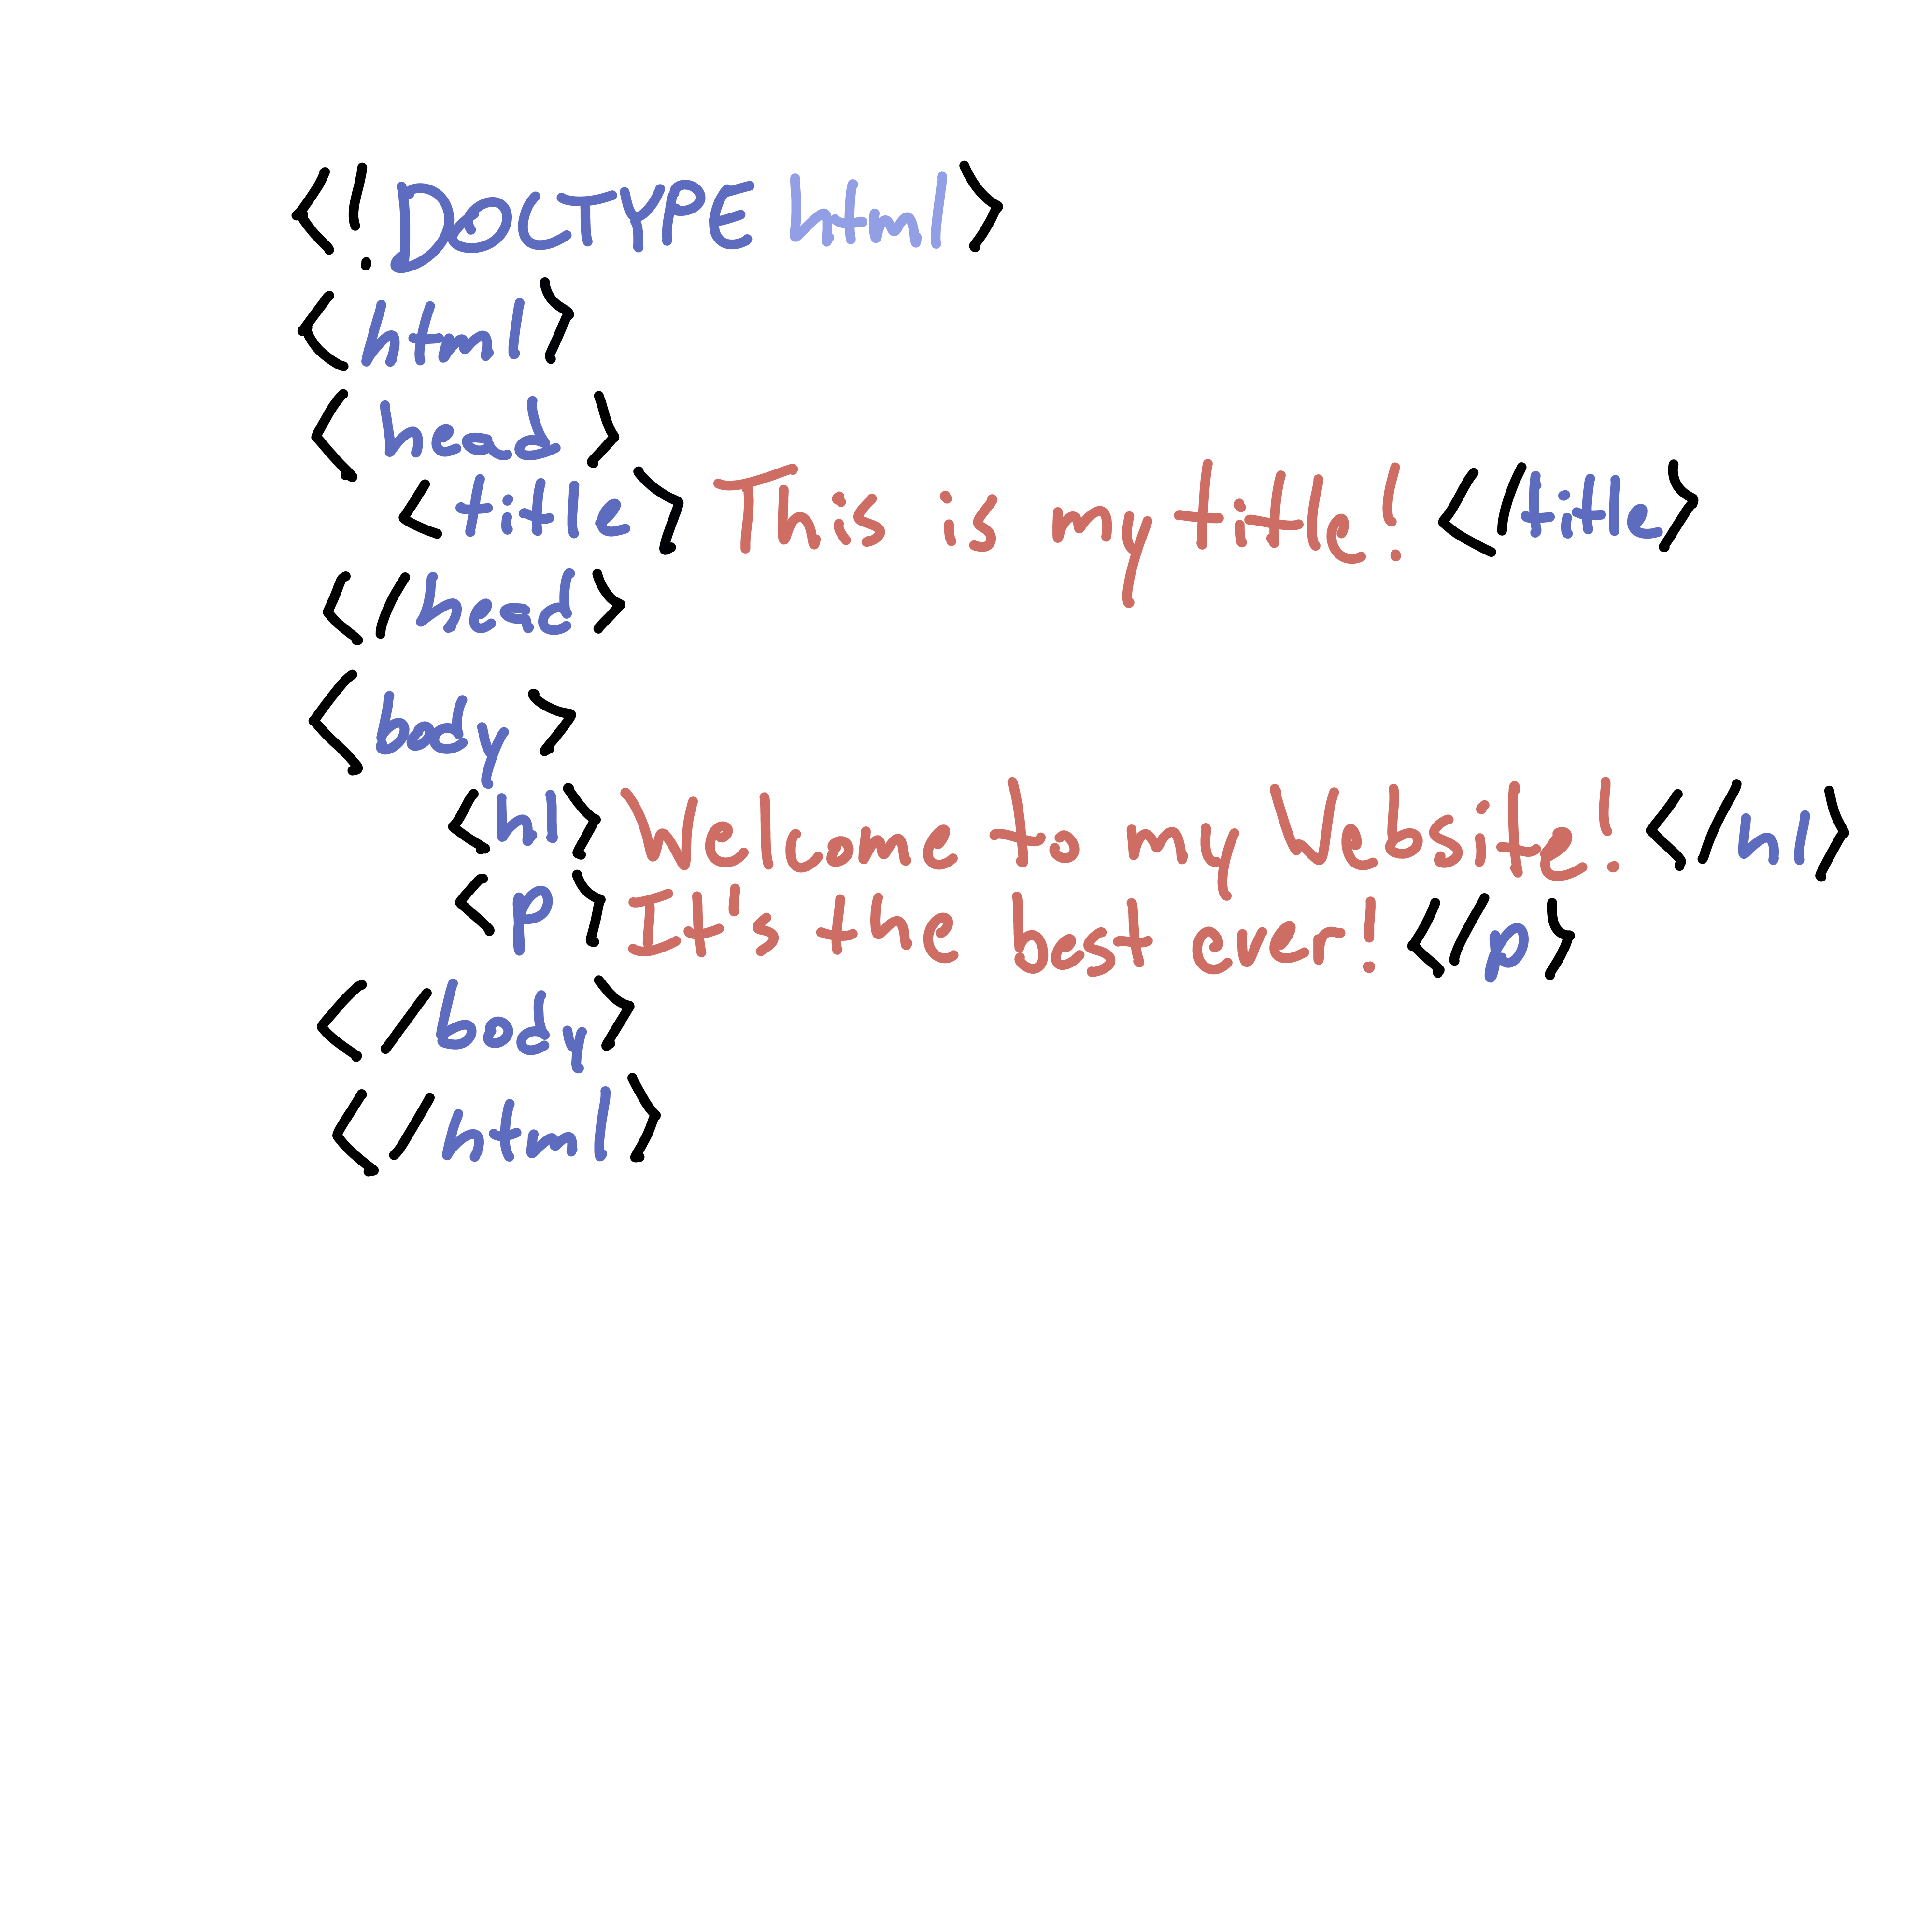 <!DOCTYPE html>
<html>
<head>
<title>This is my title!</title>
</head>
<body>
<h1>Welcome to my Website!</h1>
<p>It's the best ever!</p>
</body>
</html>